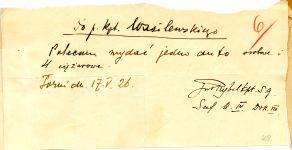 Do p. kpt. Wasilewskiego
6
Polecam wydać jedno auto osobowe i
4 ciężarowe.
Toruń dn. 17.V.26.
kpt. S.G.
Szef O. IV. DOK. VIII